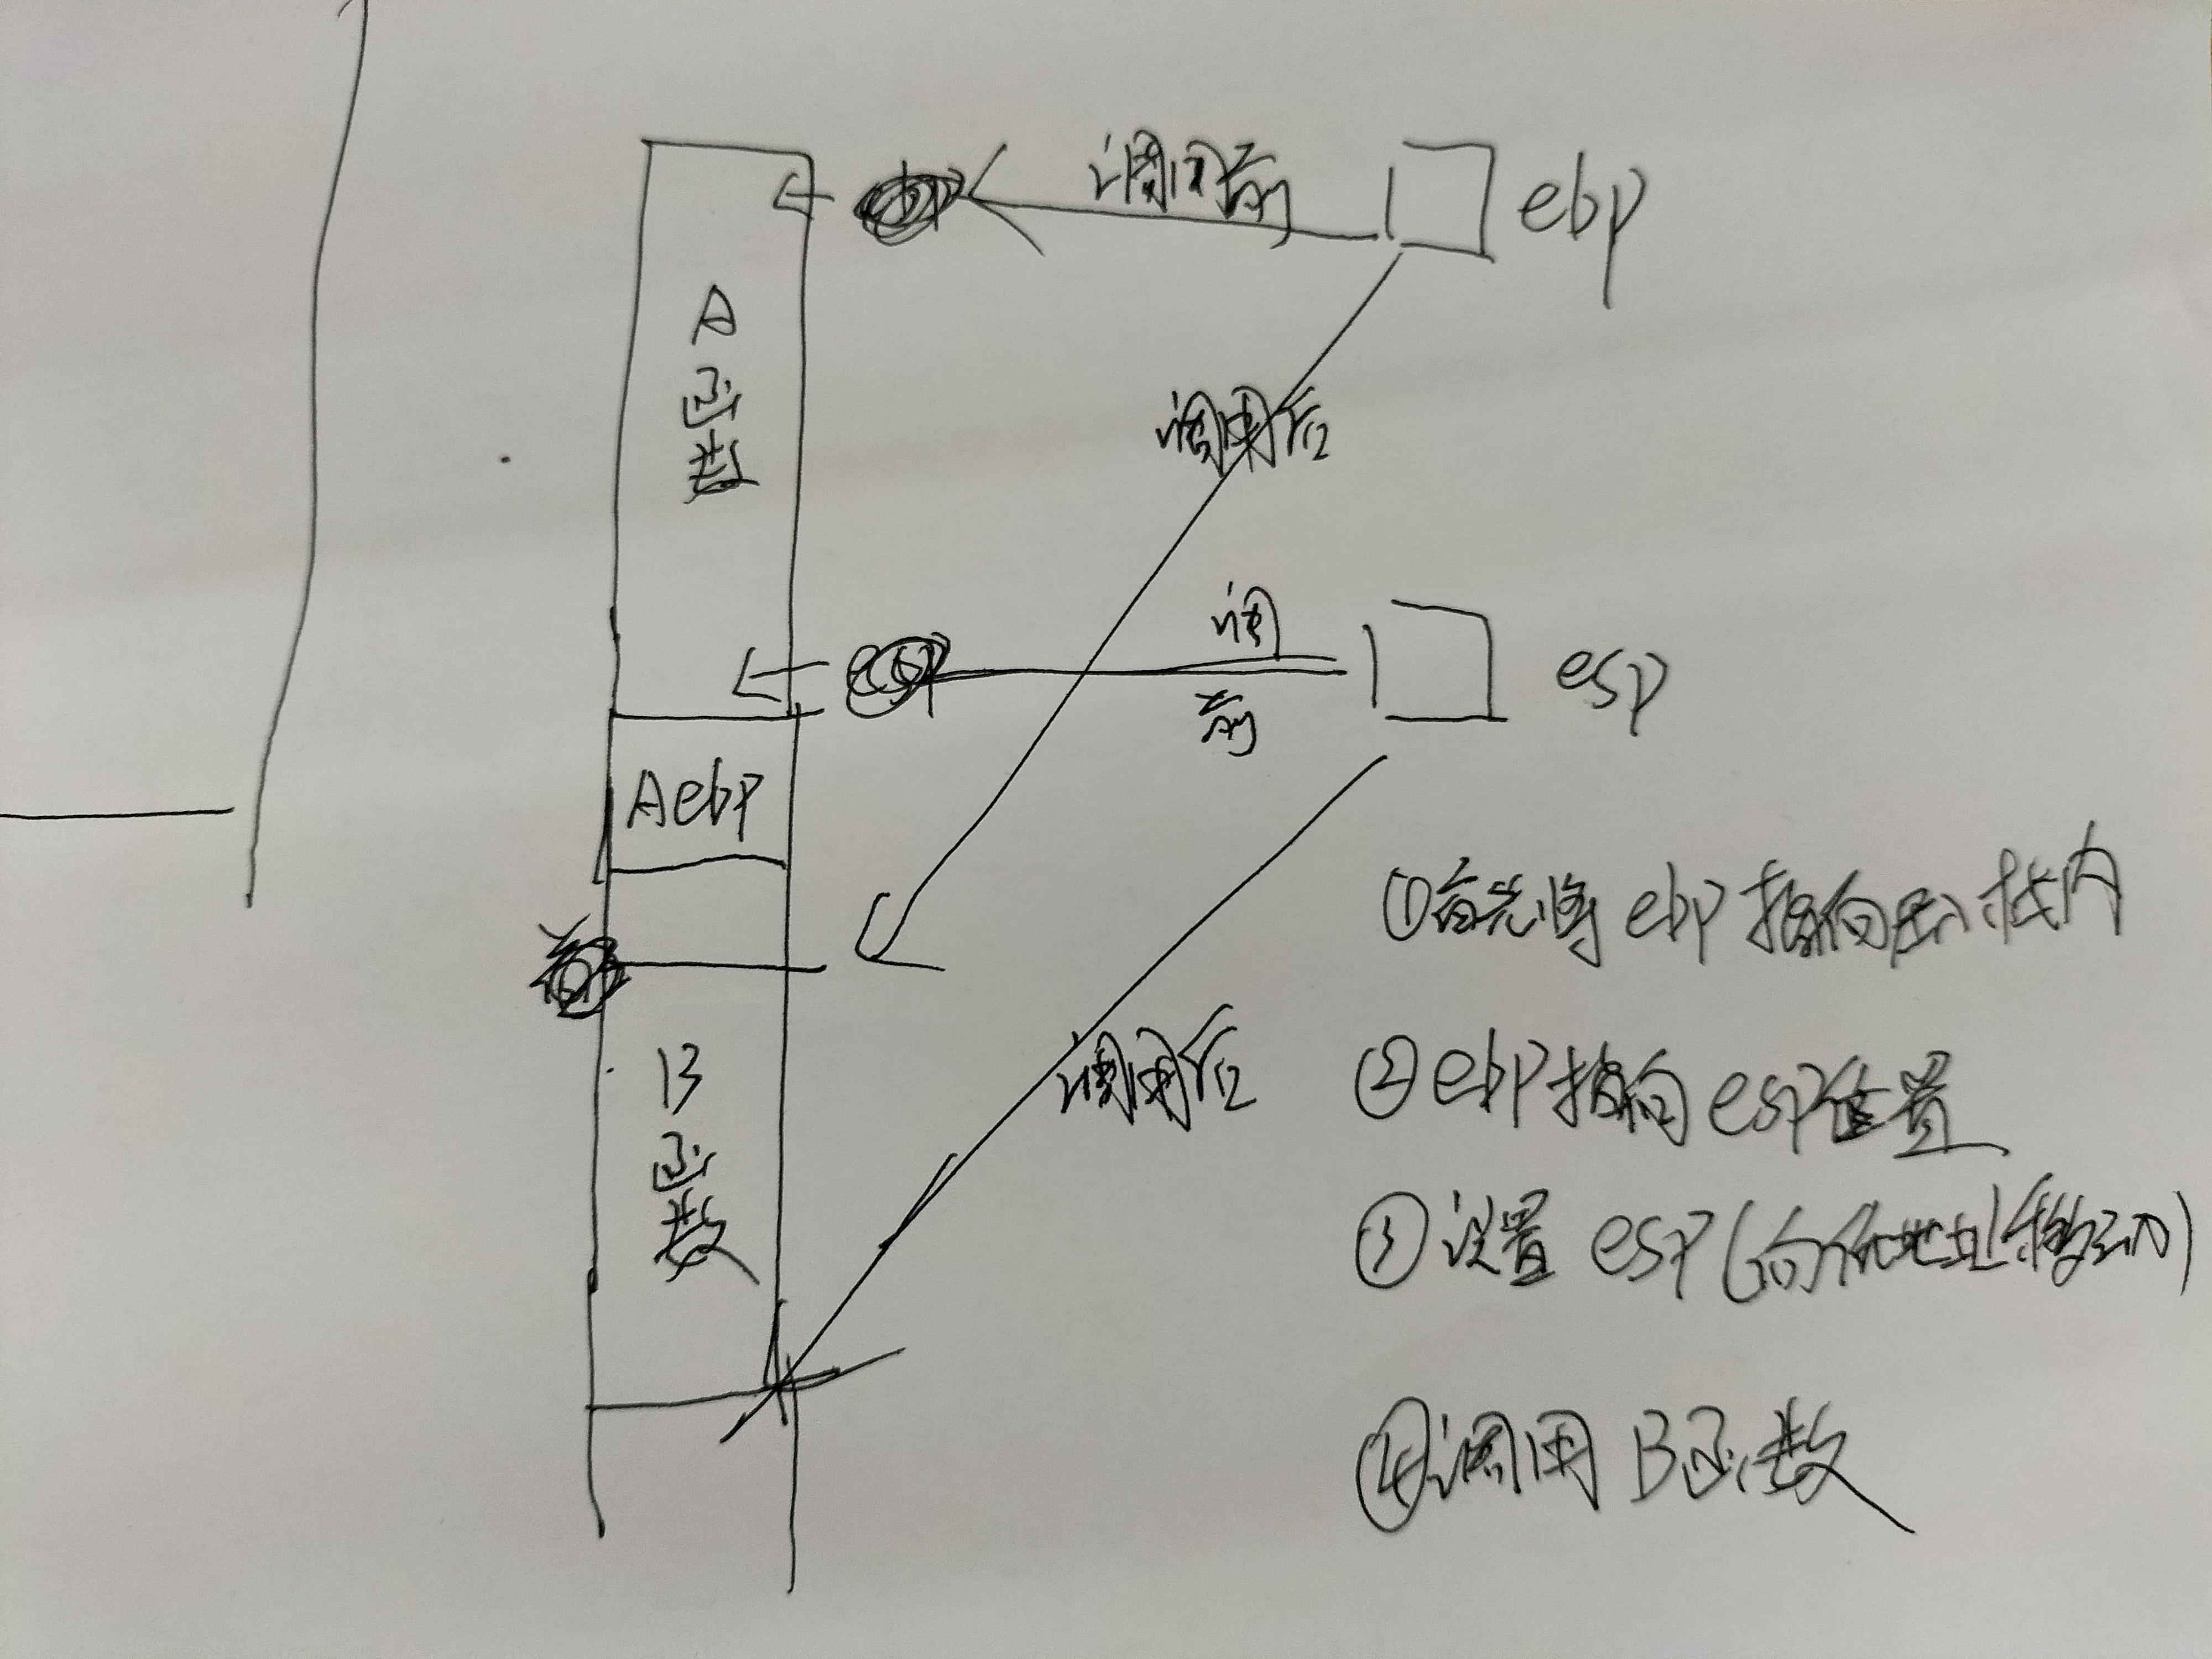 调用前 ebp
A函数
调用后
调
前
esp
Aebp
①首先将ebp指向 栈内
B函数
调用后
②ebp指向esp位置
③设置esp(向低地址移动)
④调用B函数